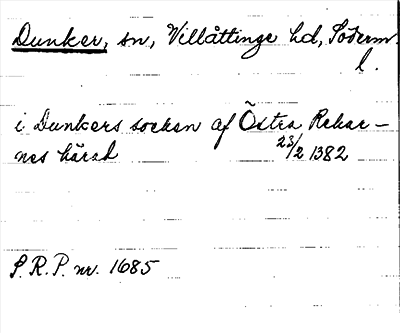 Dunker, sn, Villåttinge hd, Söderm.
l.
i Dunkers socken af Östra Rekar-
nes härad 23/2 1382
S.R.P. nr. 1685